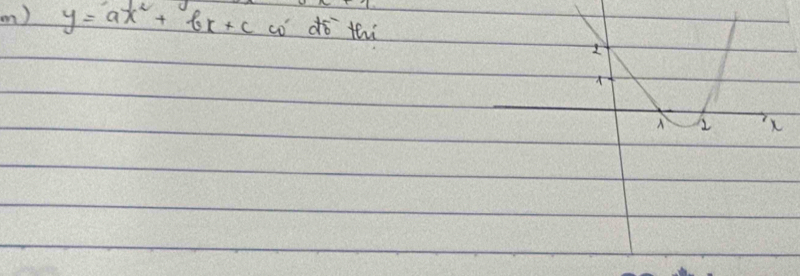 m) y = ax² + bx + c có đồ thị
2
1
1 2 x